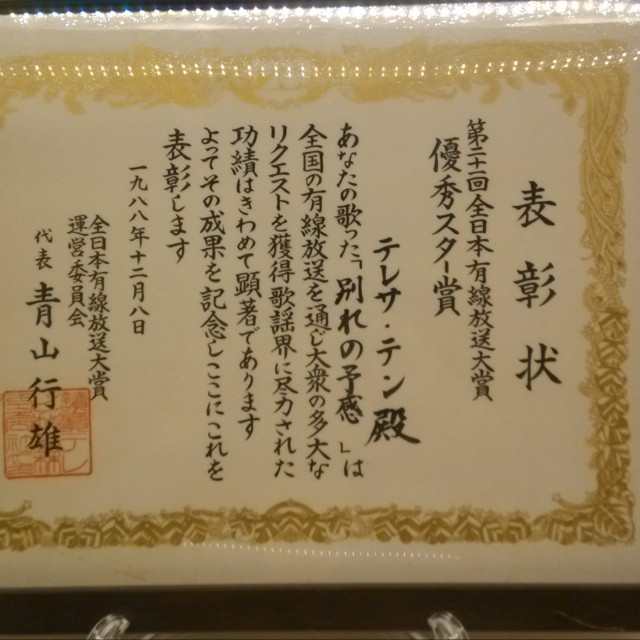 表彰状
第二十一回全日本有線放送大賞
優秀スター賞
テレサ・テン殿
あなたの歌った「別れの予感」は
全国の有線放送を通じ大衆の多大な
リクエストを獲得歌謡界に尽力された
功績はきわめて顕著であります
よってその成果を記念しここにこれを
表彰します
一九八八年十二月八日
全日本有線放送大賞
運営委員会
代表 青山行雄